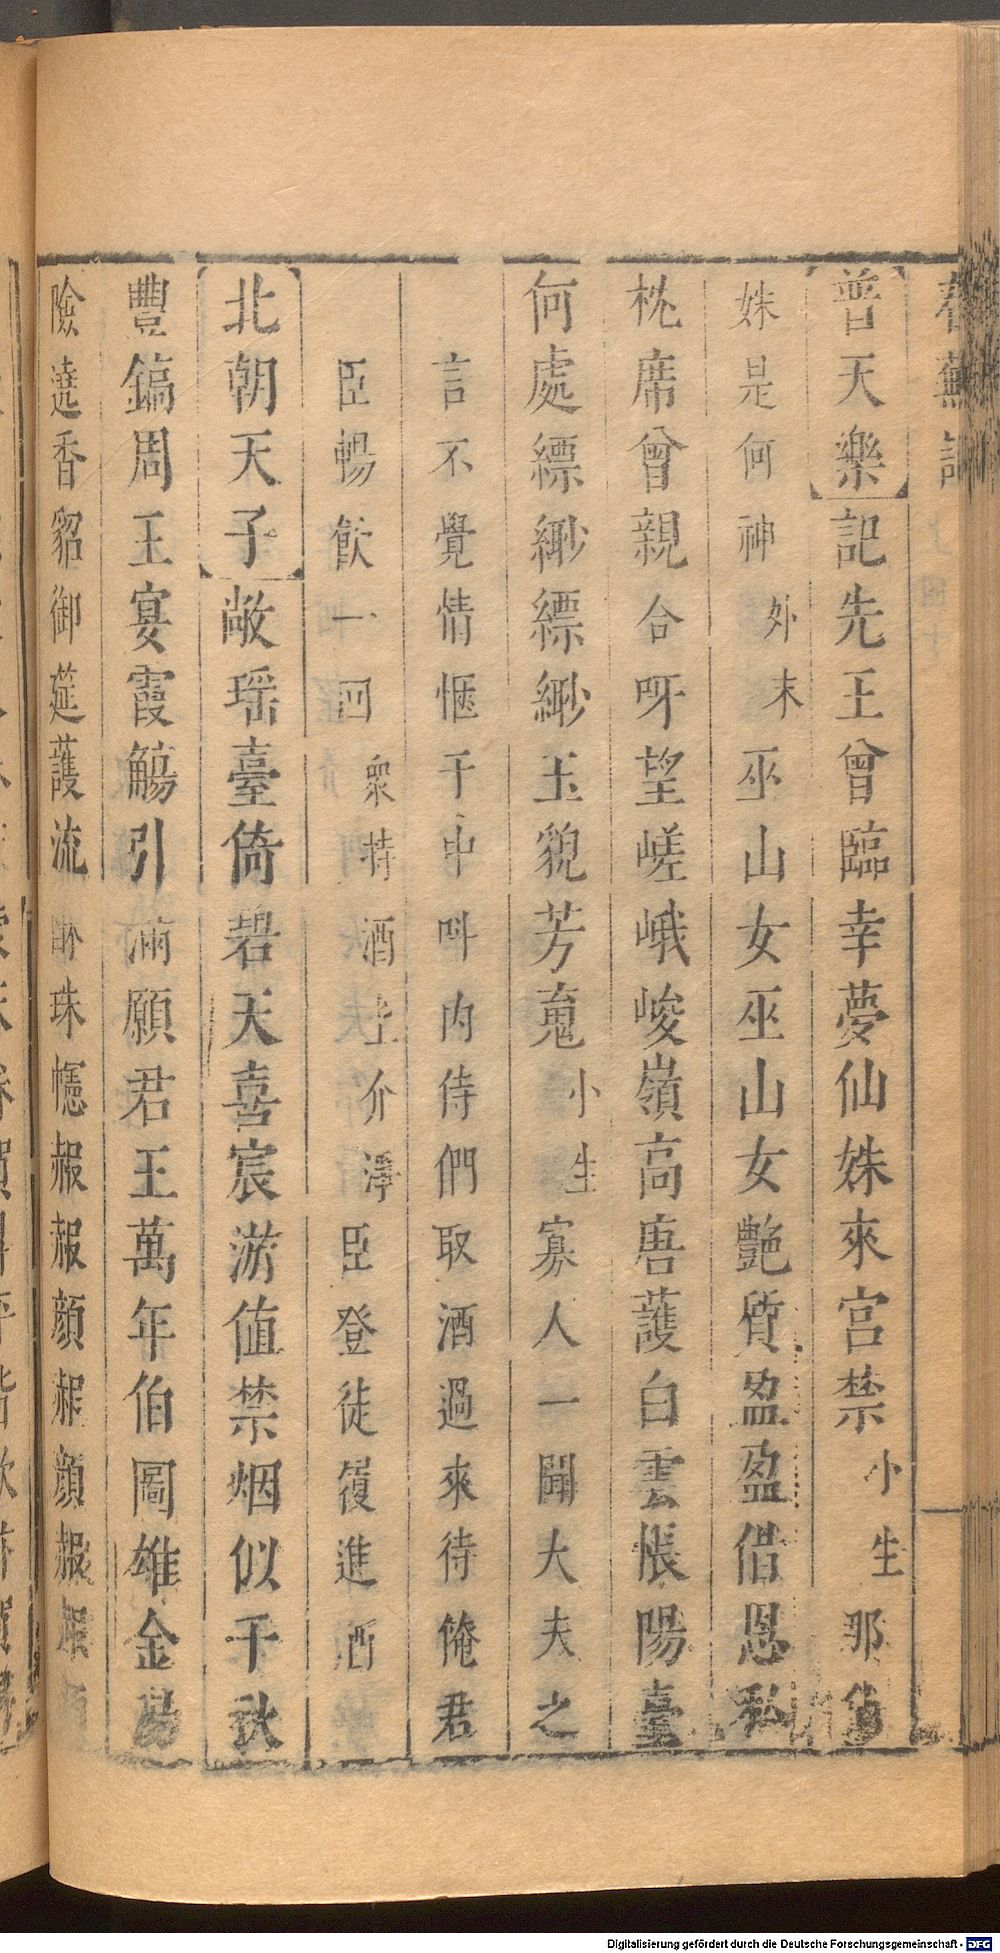 普天樂記先王曾臨幸夢仙姝來宮禁小生那
姝是何神外末巫山女巫山女艷質盈盈借恩私
枕席曾親合呀望嵯峨峻嶺高唐護白雲帳陽臺
何處縹緲縹緲玉貌芳䰟小生寡人一聞大夫之
言不覺情惬于中叫内侍們取酒過來待俺君
臣暢飲一回衆持酒上介淨臣登徒履進酒
北朝天子敞瑶臺倚碧天喜宸㳺值禁烟似千秋
豐鎬周王宴霞觴引滿願君王萬年伯圖雄金湯
險遶香貂御莚護流珠㦥赧赧顔赧顔赧
Digitalisierung gefördert durch die Deutsche Forschungsgemeinschaft - DFG